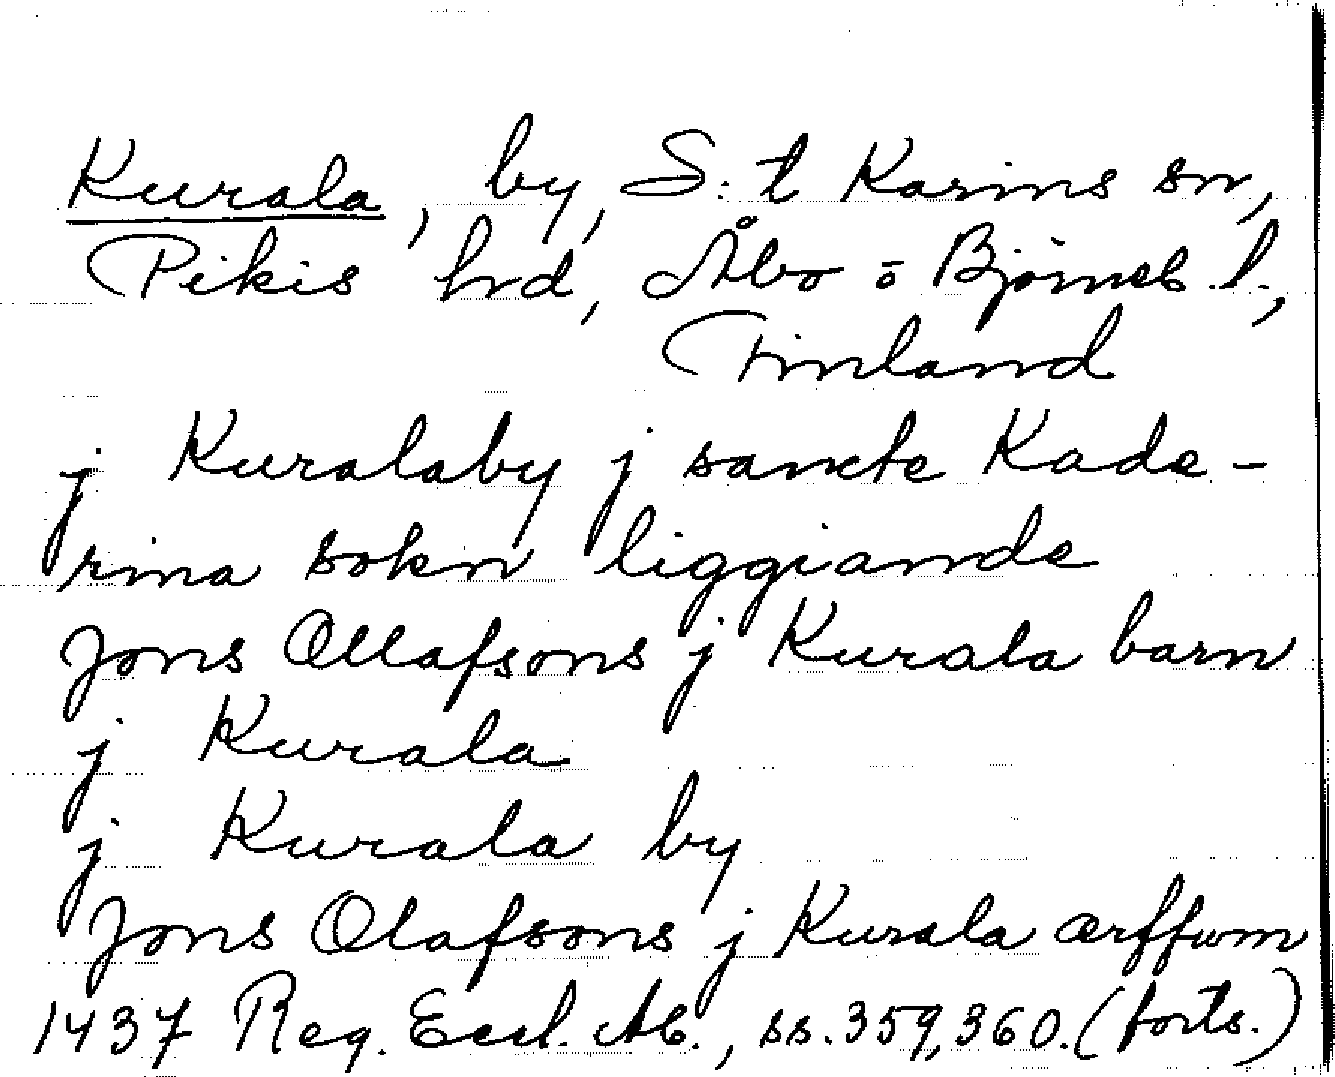 Kurala, by, S:t Karins sn,
Pikis hrd, Åbo o Björneb. l.,
Finland
j Kuralaby j sancte Kade-
rina sokn liggiande
Jons Ollafsons j Kurala barn
j Kurala
j Kurala by
Jons Olafsons j Kurala ærffwm
1437 Reg. Eccl. Ab., ss. 359, 360. (forts.)